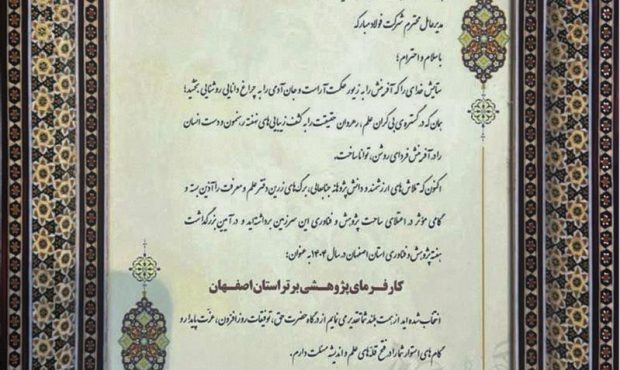 مدیرعامل محترم شرکت فولاد مبارکه
با سلام و احترام؛
ستایش خدای را که آفرینش را به زیور حکمت آراست و جان آدمی را به چراغ دانایی روشنایی بخشید؛
همان که در گستره‌ی بی‌کران علم، رهروان حقیقت را به کشف زیبایی‌های نهفته رهنمون و دست انسان
را در آفرینش فردای روشن، توانا ساخت.
اکنون که تلاش‌های ارزشمند و دانش‌پژوهانه جنابعالی، برگ‌های زرین دفتر علم و معرفت را آذین بسته و
گامی مؤثر در اعتلای ساحت پژوهش و فناوری این سرزمین برداشته‌اید و در آیین بزرگداشت
هفته پژوهش و فناوری استان اصفهان در سال ۱۴۰۴ به عنوان:
کارفرمای پژوهشی برتر استان اصفهان
انتخاب شده اید از همت بلند شما تقدیر می نمایم از درگاه حضرت حق، توفیقات روزافزون، عزت پایدار و
گام‌های استوار شما را در فتح قله‌های علم و اندیشه مسئلت دارم.